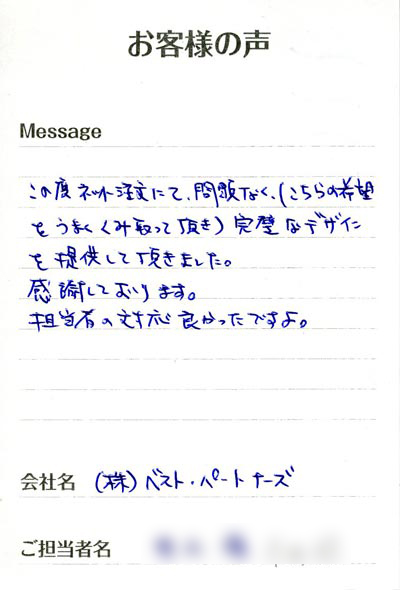 お客様の声
Message
この度ネット注文にて、問題なく、(こちらの希望
をうまくくみ取って頂き)完璧なデザイン
を提供して頂きました。
感謝しております。
担当者の対応良かったですよ。
会社名 (株)ベスト・パートナーズ
ご担当者名